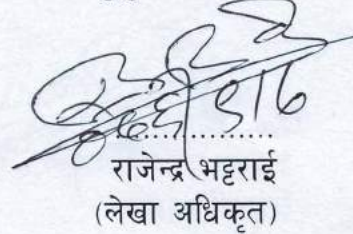 राजेन्द्र भट्टराई
(लेखा अधिकृत)